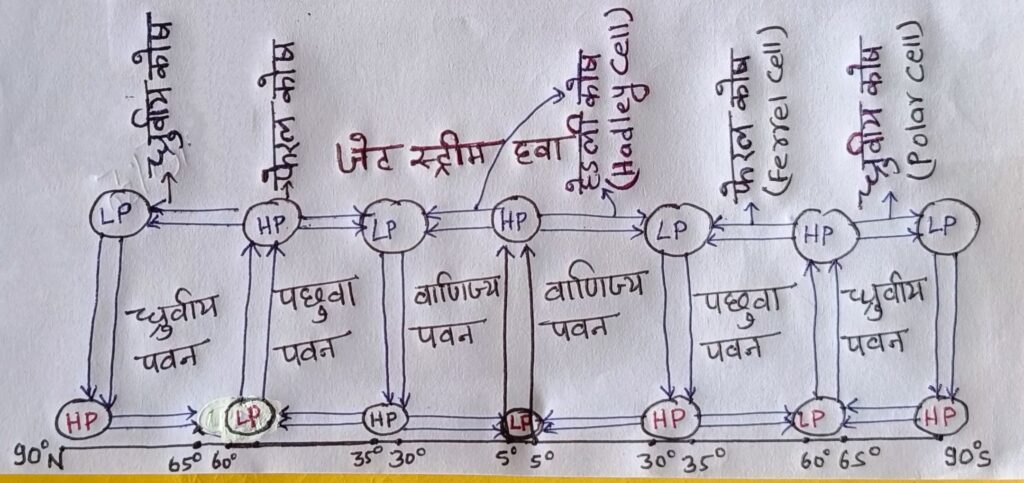 ध्रुवीय कोष
फेरल कोष
जेट स्ट्रीम हवा
हेडली कोष
(Hadley Cell)
फेरल कोष
(Ferrel Cell)
ध्रुवीय कोष
(Polar Cell)
LP HP LP HP LP HP LP
ध्रुवीय
पवन
पछुवा
पवन
वाणिज्य
पवन
वाणिज्य
पवन
पछुवा
पवन
ध्रुवीय
पवन
HP LP HP LP HP LP HP
90°N 65° 60° 35° 30° 5° 5° 30° 35° 60° 65° 90°S